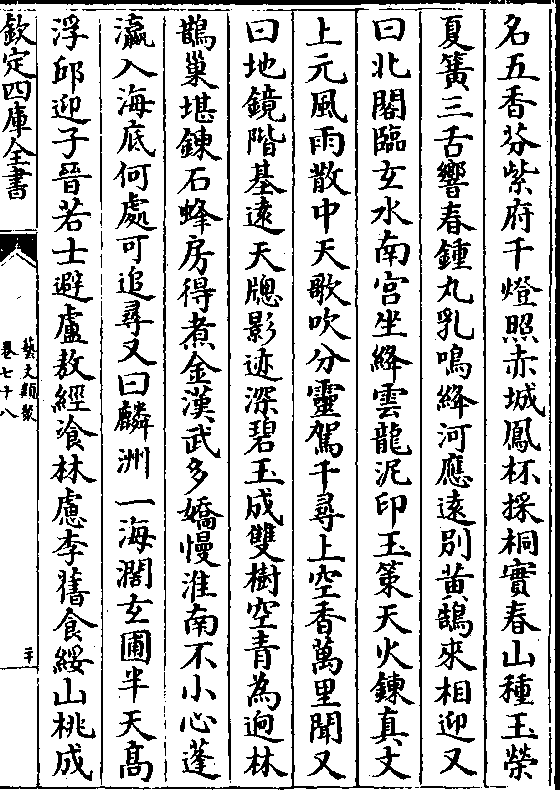 名五香芬紫府千燈照赤城鳳杯採桐實春山種玉榮
夏簧三舌響春鍾九乳鳴絳河應遠別黃鵠來相迎又
曰北閣臨玄水南宫坐絳雲龍泥印玉策天火鍊真文
上元風雨散中天歌吹分靈駕千尋上空香萬里聞又
曰地鏡階基遠天牕影迹深碧玉成雙樹空青為逈林
鵲巢堪鍊石蜂房得煮金漢武多嬌慢淮南不小心蓬
瀛入海底何處可追尋又曰麟洲一海濶玄圃半天髙
浮邱迎子晉若士避盧敖經飡林慮李舊食綏山桃成
欽定四庫全書
藝文類聚
卷七十八
二十